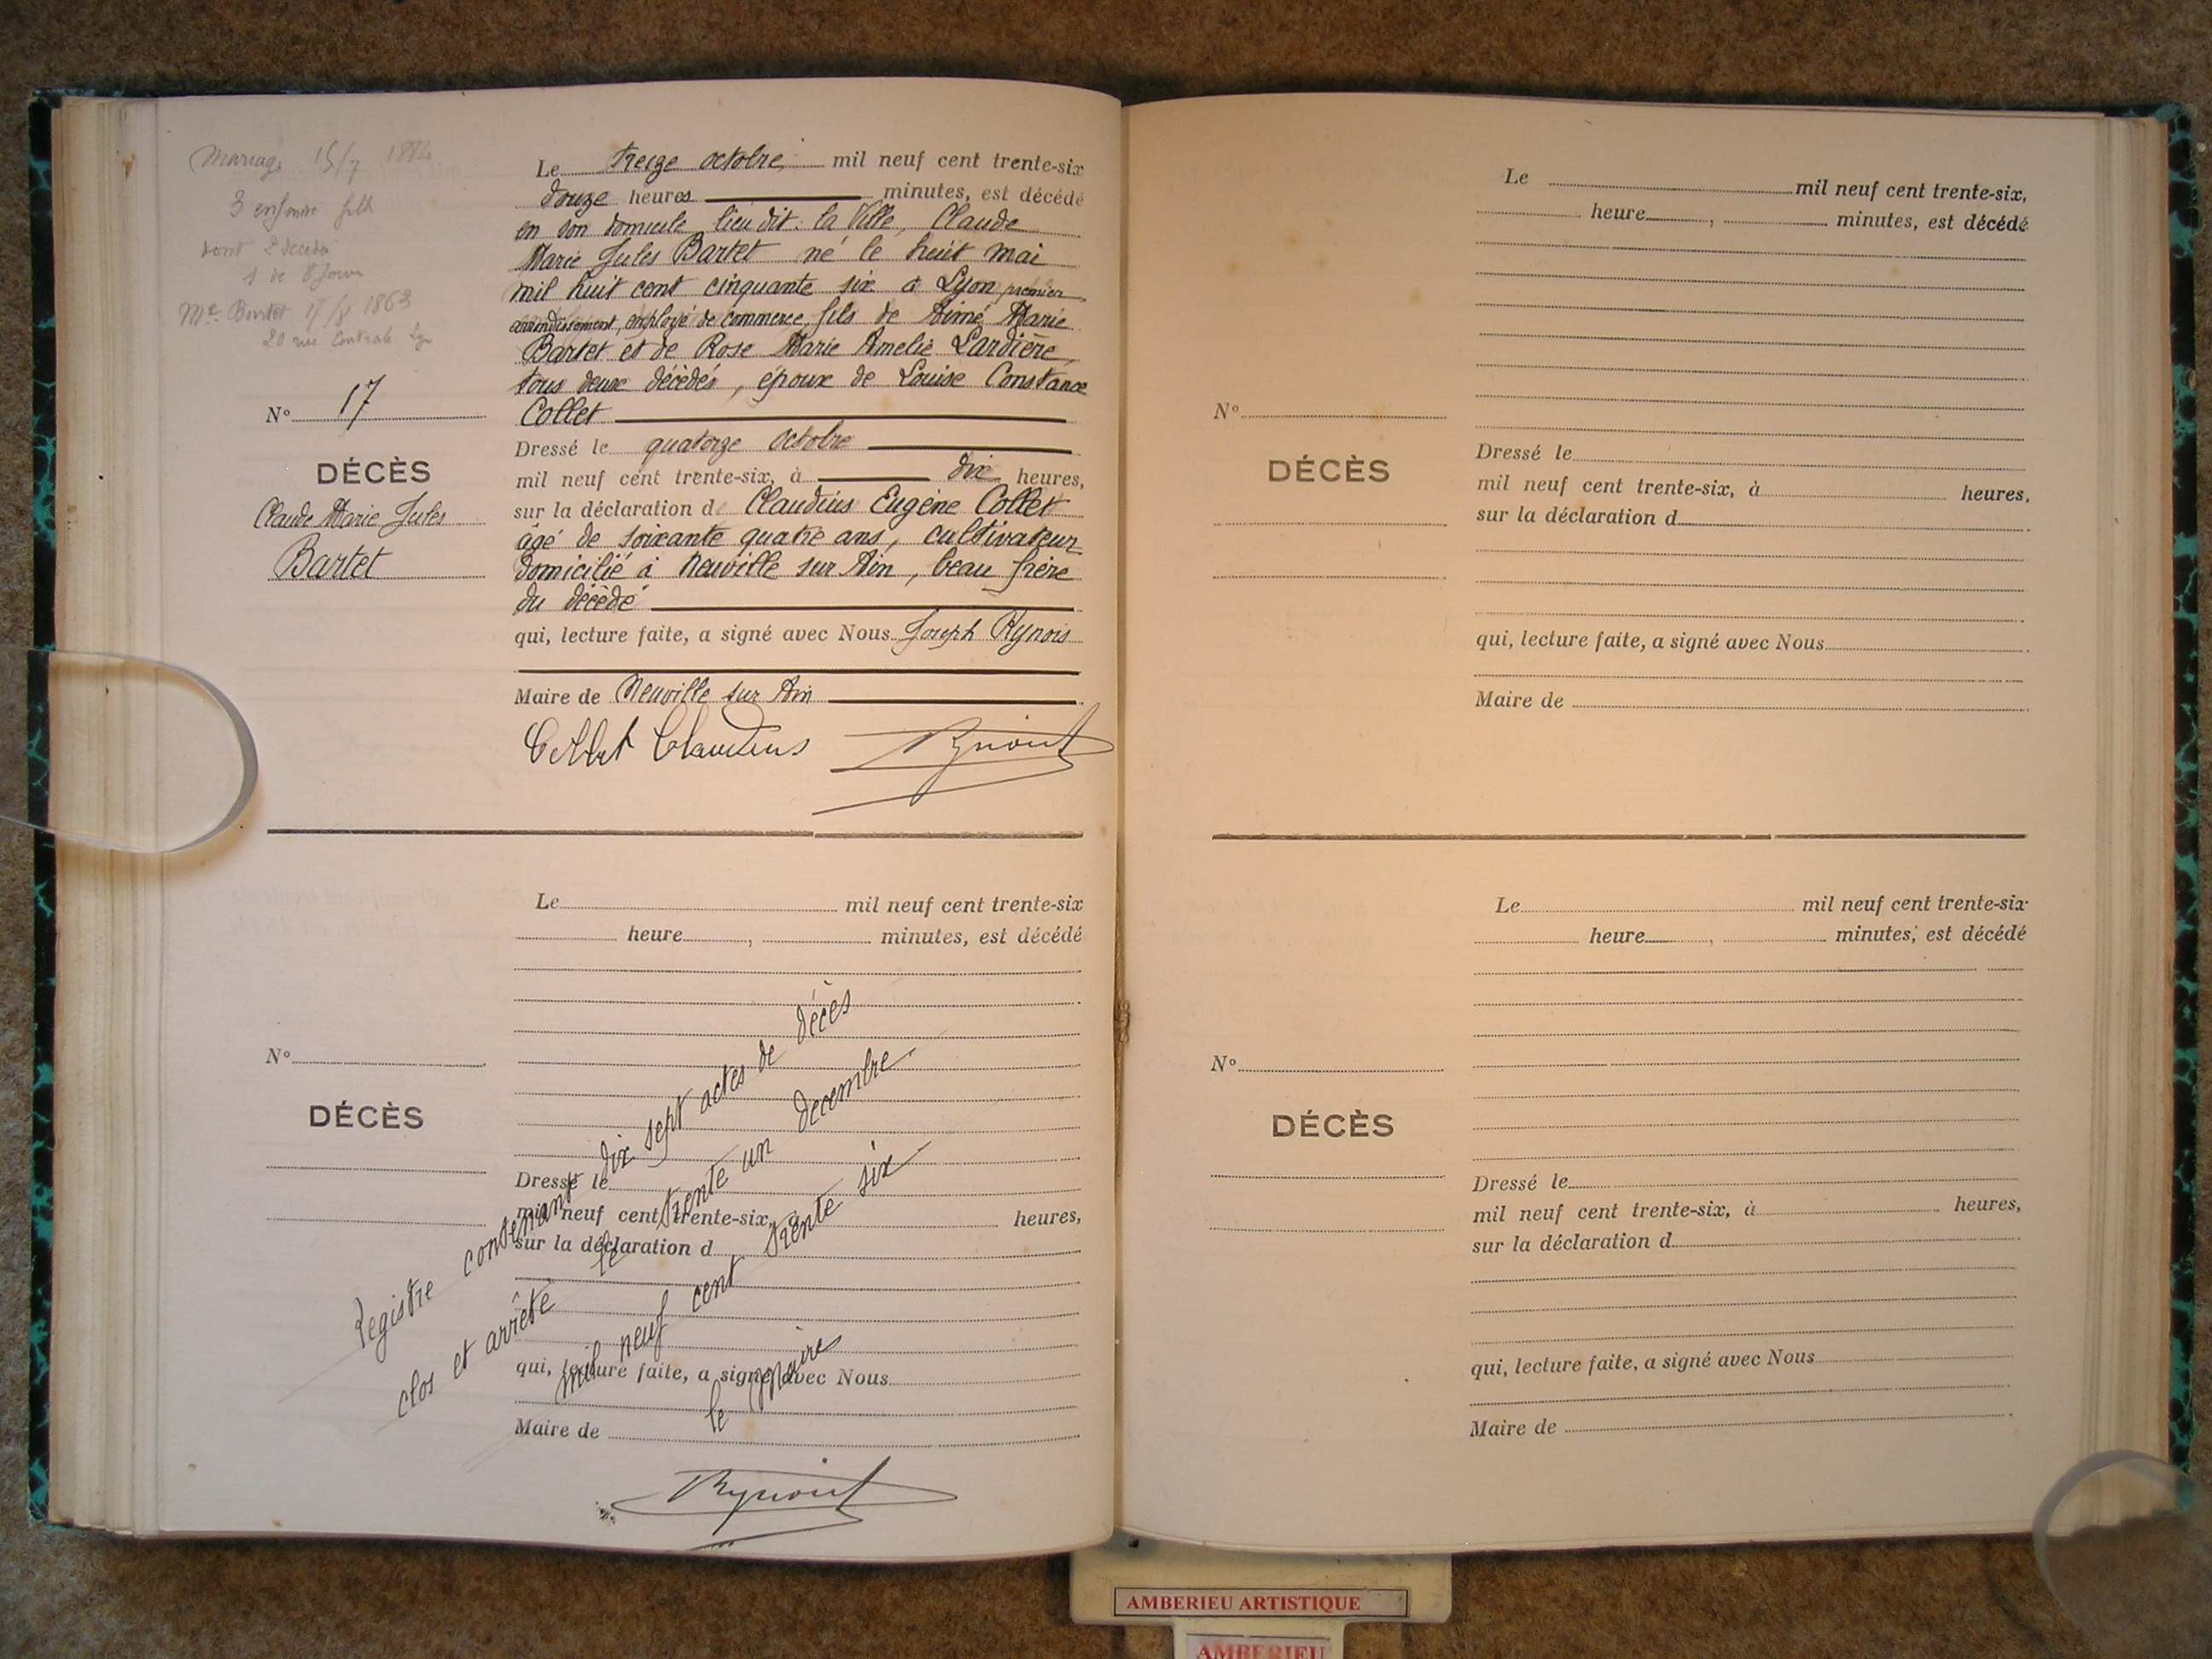 Mariage 15/7 1884
3 enfants
dont 2 décédés
1 de 8 jours
Me Bartet 17/8 1863
20 rue Centrale
Le treize octobre mil neuf cent trente-six
douze heures minutes, est décédé
en son domicile, lieu dit : la Ville, Claude
Marie Jules Bartet né le huit mai
mil huit cent cinquante six à Lyon premier
arrondissement, employé de commerce, fils de Aimé Marie
Bartet et de Rose Marie Amelie Lardière,
tous deux décédés, époux de Louise Constance
Collet
N° 17
DÉCÈS
Claude Marie Jules
Bartet
Dressé le quatorze octobre
mil neuf cent trente-six, à dix heures,
sur la déclaration de Claudius Eugène Collet
âgé de soixante quatre ans, cultivateur
domicilié à Neuville sur Ain, beau frère
du décédé
qui, lecture faite, a signé avec Nous Joseph
Maire de Neuville sur Ain
Collet Claudius
Le mil neuf cent trente-six
heure , minutes, est décédé
N°
DÉCÈS
Dressé le
mil neuf cent trente-six, à heures,
sur la déclaration d
qui, lecture faite, a signé avec Nous
Maire de
Registre contenant dix sept actes de décès
clos et arrêté le trente un décembre
mil neuf cent trente six
le maire
Le mil neuf cent trente-six,
heure , minutes, est décédé
N°
DÉCÈS
Dressé le
mil neuf cent trente-six, à heures,
sur la déclaration d
qui, lecture faite, a signé avec Nous
Maire de
Le mil neuf cent trente-six
heure , minutes, est décédé
N°
DÉCÈS
Dressé le
mil neuf cent trente-six, à heures,
sur la déclaration d
qui, lecture faite, a signé avec Nous
Maire de
AMBERIEU ARTISTIQUE
AMBERIEU